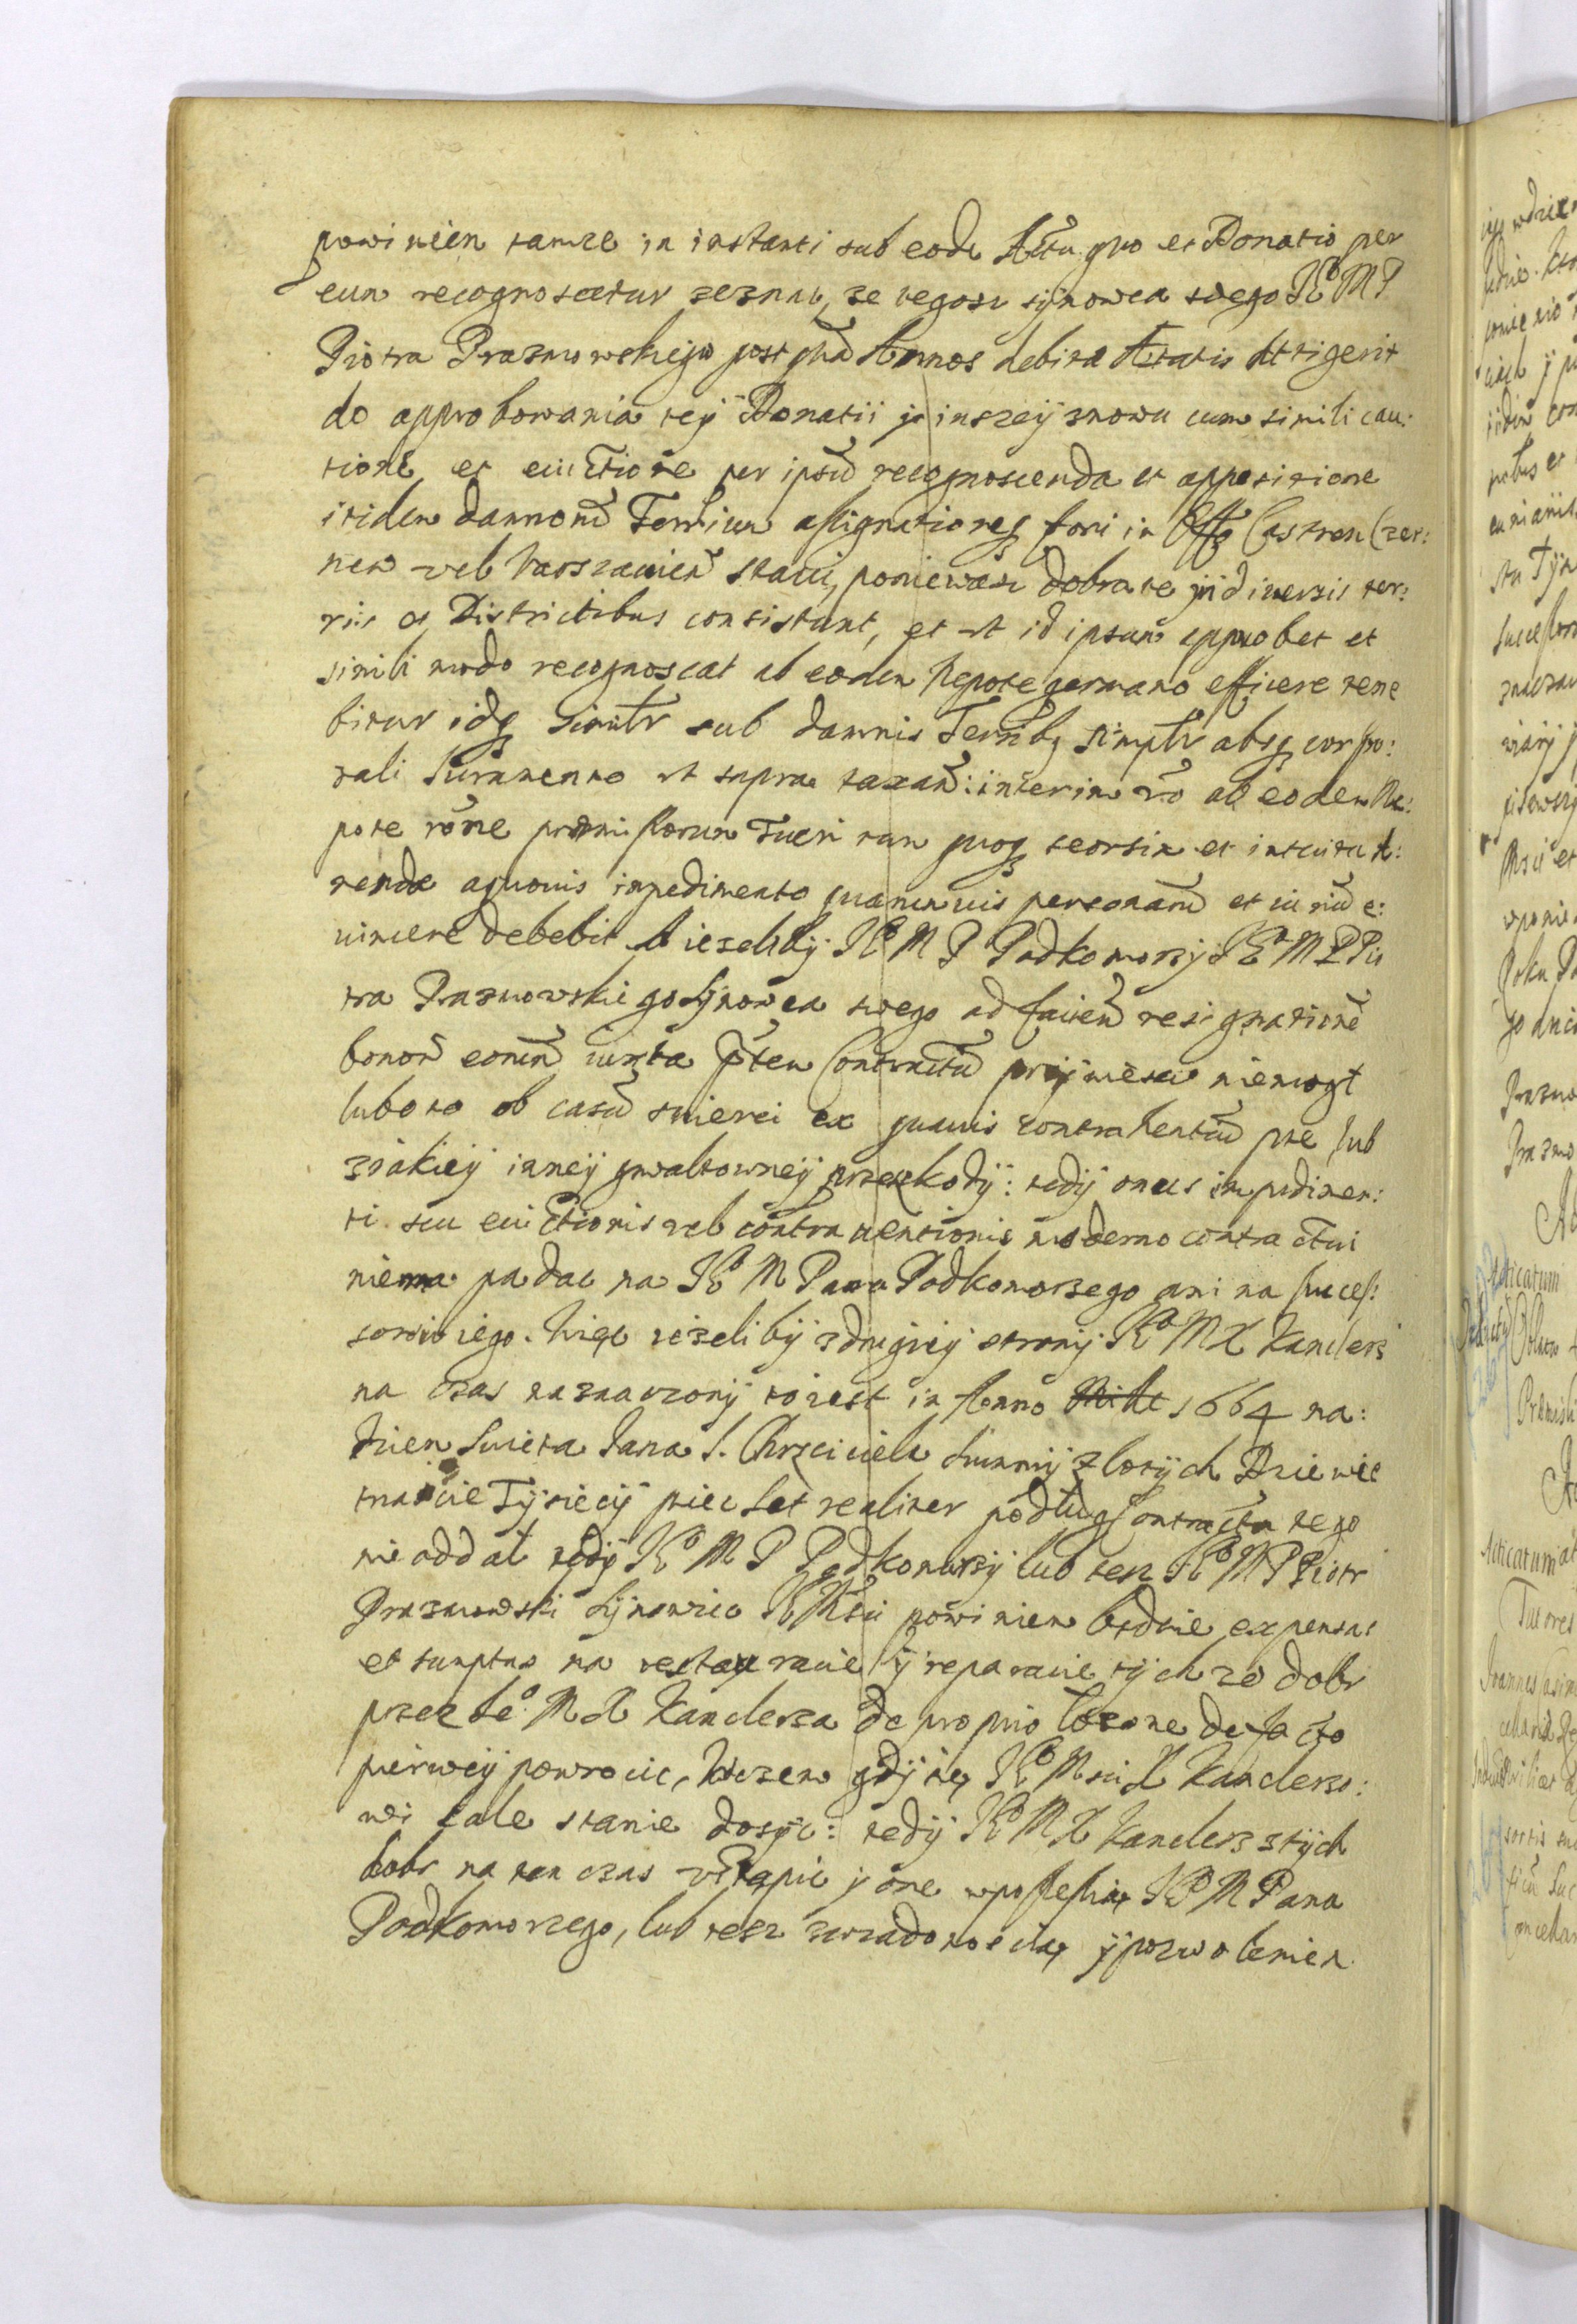 powinien tamze in instanti sub eodē Actu quo et Donatio per
eum recognoscetur zeznac, ze tegosz synowca swego JEoMP
Piotra Prazmowskiego postqūa Annos debitae AEtatis attigerit
do approbowania tey Donatii y inszey znowu cum simili cau:
tione et euictione per ipsū recognoscenda et appositione
itidem damnorū Terrium assignationeq fori in Offo Castren Czer:
nen vel Warszauien̄ stawic, poniewasz dobra te in diuersis ter:
ris et Districtibus consistunt, et ut id ipsum approbet et
simili modo recognoscat ab eodem Nepote germano efficere tene
bitur idq simīlr sub damnis Terribq simplr absq corpo:
rali Juramento ut supra taxan̄: interim vō ab eodem Ne:
pote rōne praemissorum Tueri tum quoq seorsim et intuitu A:
rendae aquouis impedimento quarumuis personarū et iuriū e:
uincere debebit. A iezeliby JEo M P Podkomorzy JEo M P Pio
tra Prazmowskiego Synowca swego ad faciēn resignationē
bonorū eorūn iuxta pntem Contractū przywiesc niemogł
lubo to ob casū smierci ex quauis contrahentiū pte lub
z iakiey inney gwaltowney przeszkody: tedy onus impedimen:
ti seu euictionis vel contrauentionis moderno contractui
niema padac na JEo M Pana Podkomorzego ani na succes:
sorow iego. Więc iezeli by z drugiey strony JEo M X Kanclerz
na czas naznaczony to iest in Anno 1664 na:
dzien Swieta Jana S. Chrzciciela Summy zlotych Dziewiet
nascie Tysiecy piec set realiter podług Contractu tego
nie oddał tedy JEo M P Podkomorzy lub tesz JEo M P Piotr
Prazmowski Synowiec JE Msci powinien bedzie expensas
et sumptus na restauracie y reparacie tychze dobr
przez Jeo M X Kanclerza de proprio łozone de facto
pierwey powrocic, Wczem gdy się JEo Msci X Kanclerzo:
wi cale stanie dosyc: tedy JEo M X Kanclerz z tych
dobr na ten czas ustąpic y one w possessią JEo M Pana
Podkomorzego, lub tesz zwiadomoscią y pozwoleniem